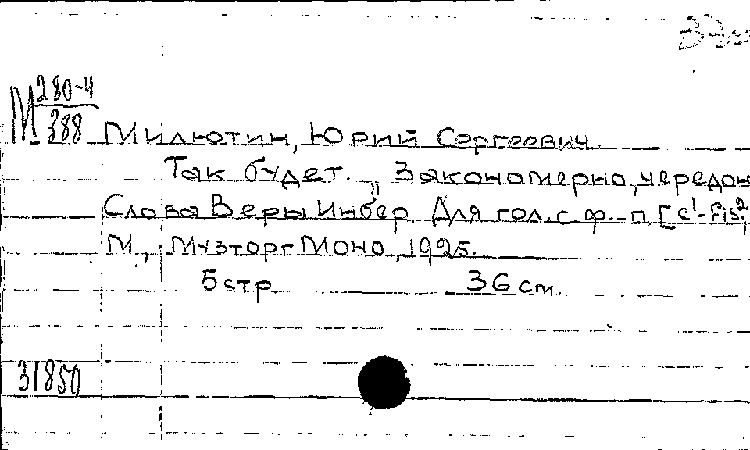 М 280-4
388
Милютин, Юрий Сергеевич.
Так будет. „Закономерно, чередон
Слова Веры Инбер Для гол. с ф.-п [c¹-fis²,
М., Музторг Моно, 1925.
5 стр. 36 см.
31850